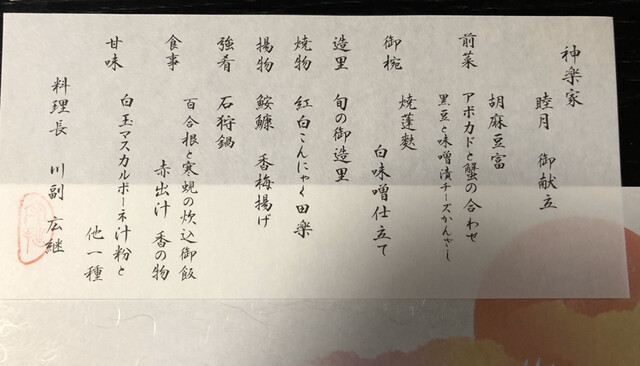 神楽家
睦月 御献立
前菜 胡麻豆富
アボカドと蟹の合わせ
黒豆と味噌漬チーズかんざし
御椀 焼蓬麩
白味噌仕立て
造里 旬の御造里
焼物 紅白こんにゃく田楽
揚物 鮟鱇 香梅揚げ
強肴 石狩鍋
食事 百合根と寒蜆の炊込御飯
赤出汁 香の物
甘味 白玉マスカルポーネ汁粉と
他一種
料理長 川副 広継